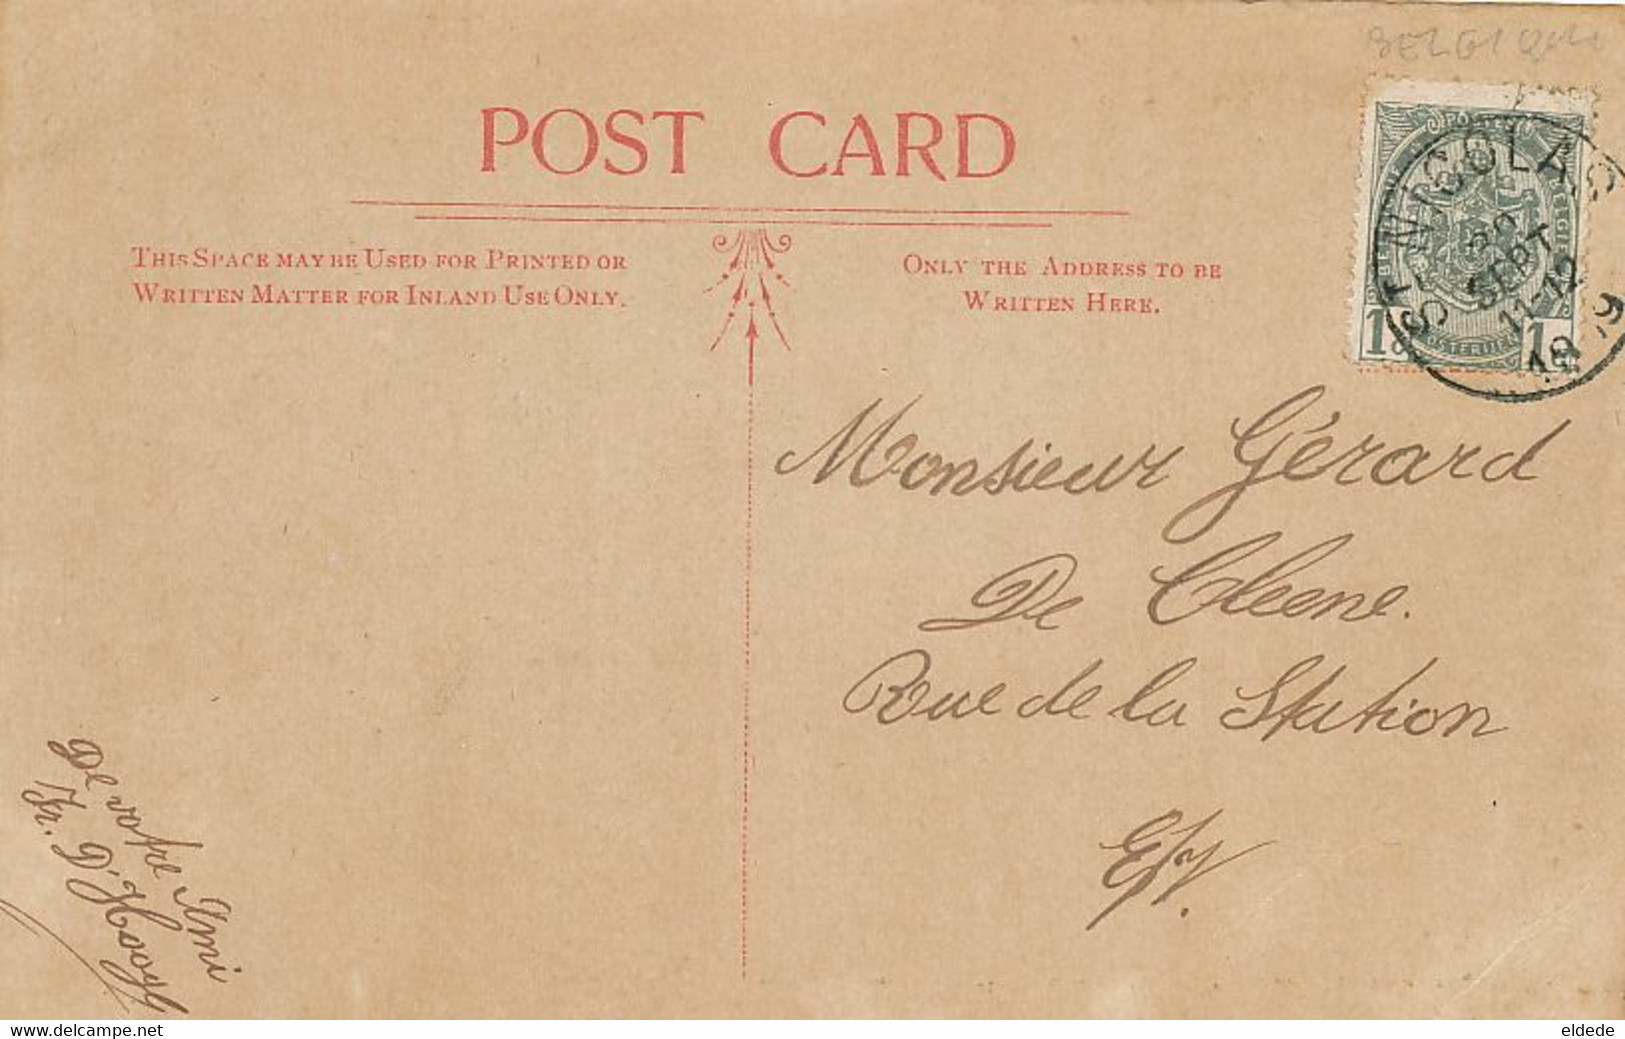 BELGIQUE
POST CARD
THIS SPACE MAY BE USED FOR PRINTED OR
WRITTEN MATTER FOR INLAND USE ONLY.
ONLY THE ADDRESS TO BE
WRITTEN HERE.
ST NICOLAS
20
SEPT
11-12
19 9
1 1
Monsieur Gérard
De Cleene.
Rue de la Station
E/V.
De votre Ami
Fr. D'Hooyh
www.delcampe.net
eldede